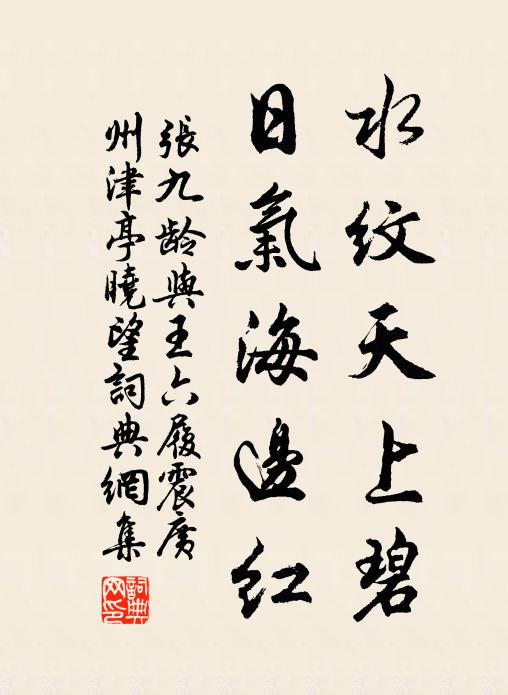 水紋天上碧
日氣海邊紅
張九齡與王六履震廣
州津亭曉望詞典網集
詞典
网印